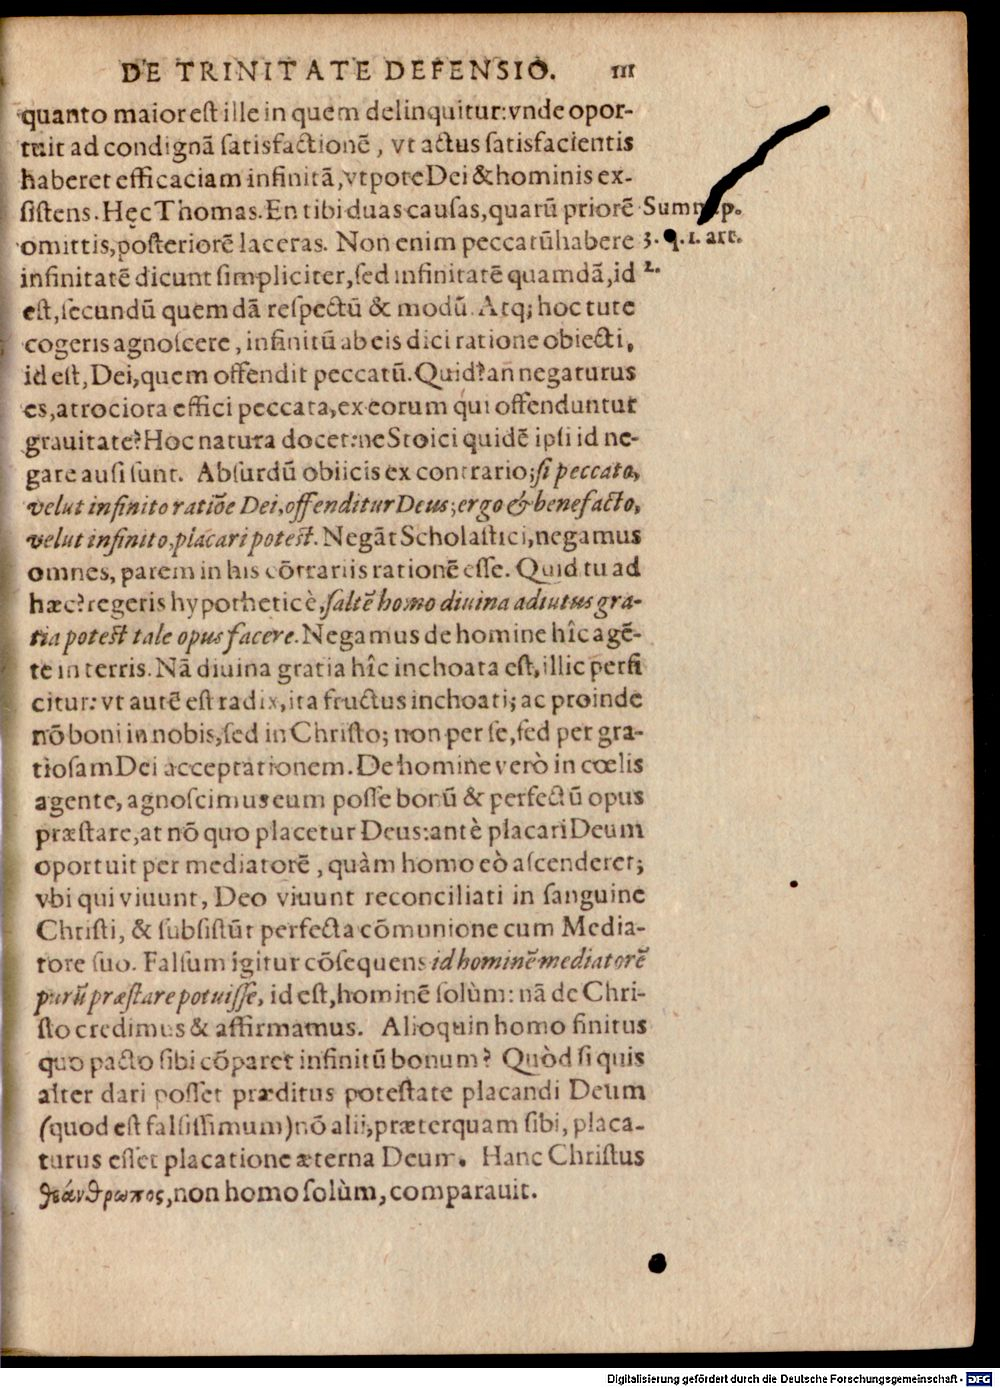 DE TRINITATE DEFENSIO. 111
quanto maior est ille in quem delinquitur: vnde opor-
tuit ad condignã satisfactionẽ, vt actus satisfacientis
haberet efficaciam infinitã, vtpote Dei & hominis ex-
sistens. Hęc Thomas. En tibi duas causas, quarũ priorẽ
omittis, posteriorẽ laceras. Non enim peccatũ habere
infinitatẽ dicunt simpliciter, sed infinitatẽ quamdã, id
est, secundũ quemdã respectũ & modũ. Atq; hoc tute
cogeris agnoscere, infinitũ ab eis dici ratione obiecti,
id est, Dei, quem offendit peccatũ. Quid? an negaturus
es, atrociora effici peccata, ex eorum qui offenduntur
grauitate? Hoc natura docet: ne Stoici quidẽ ipsi id ne-
gare ausi sunt. Absurdũ obiicis ex contrario; si peccato,
velut infinito ratiõe Dei, offenditur Deus; ergo & benefacto,
velut infinito, placari potest. Negãt Scholastici, negamus
omnes, parem in his cõtrariis rationẽ esse. Quid tu ad
hæc? regeris hypotheticè, saltẽ homo diuina adiutus gra-
tia potest tale opus facere. Negamus de homine hîc agẽ-
te in terris. Nã diuina gratia hîc inchoata est, illic perfi
citur: vt autẽ est radix, ita fructus inchoati; ac proinde
nõ boni in nobis, sed in Christo; non per se, sed per gra-
tiosam Dei acceptationem. De homine verò in cœlis
agente, agnoscimus eum posse bonũ & perfectũ opus
præstare, at nõ quo placetur Deus: antè placari Deum
oportuit per mediatorẽ, quàm homo eò ascenderet;
vbi qui viuunt, Deo viuunt reconciliati in sanguine
Christi, & subsistũt perfecta cõmunione cum Media-
tore suo. Falsum igitur cõsequens id hominẽ mediatorẽ
purũ præstare potuisse, id est, hominẽ solùm: nã de Chri-
sto credimus & affirmamus. Alioquin homo finitus
quo pacto sibi cõparet infinitũ bonum? Quòd si quis
alter dari posset præditus potestate placandi Deum
(quod est falsissimum) nõ alii, præterquam sibi, placa-
turus esset placatione æterna Deum. Hanc Christus
θεάνθρωπος, non homo solùm, comparauit.
Summ. p.
3. q. 1. art.
2.
Digitalisierung gefördert durch die Deutsche Forschungsgemeinschaft - DFG